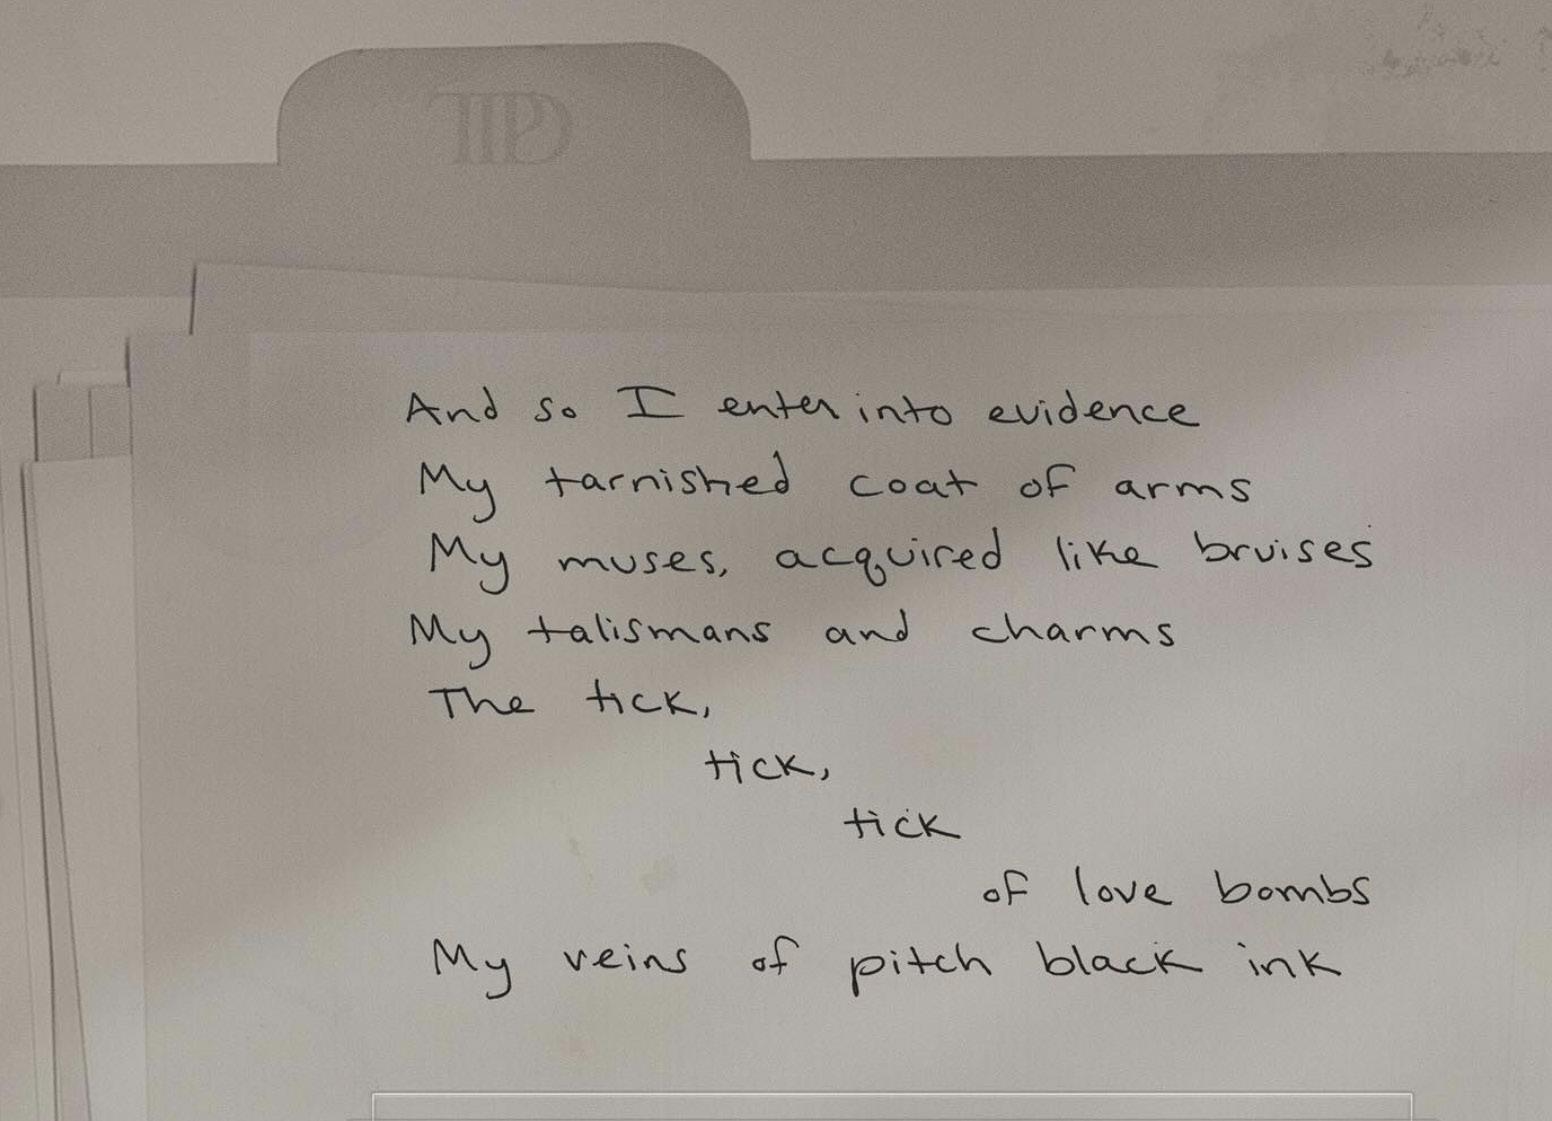 And so I enter into evidence
My tarnished coat of arms
My muses, acquired like bruises
My talismans and charms
The tick,
tick,
tick
of love bombs
My veins of pitch black ink